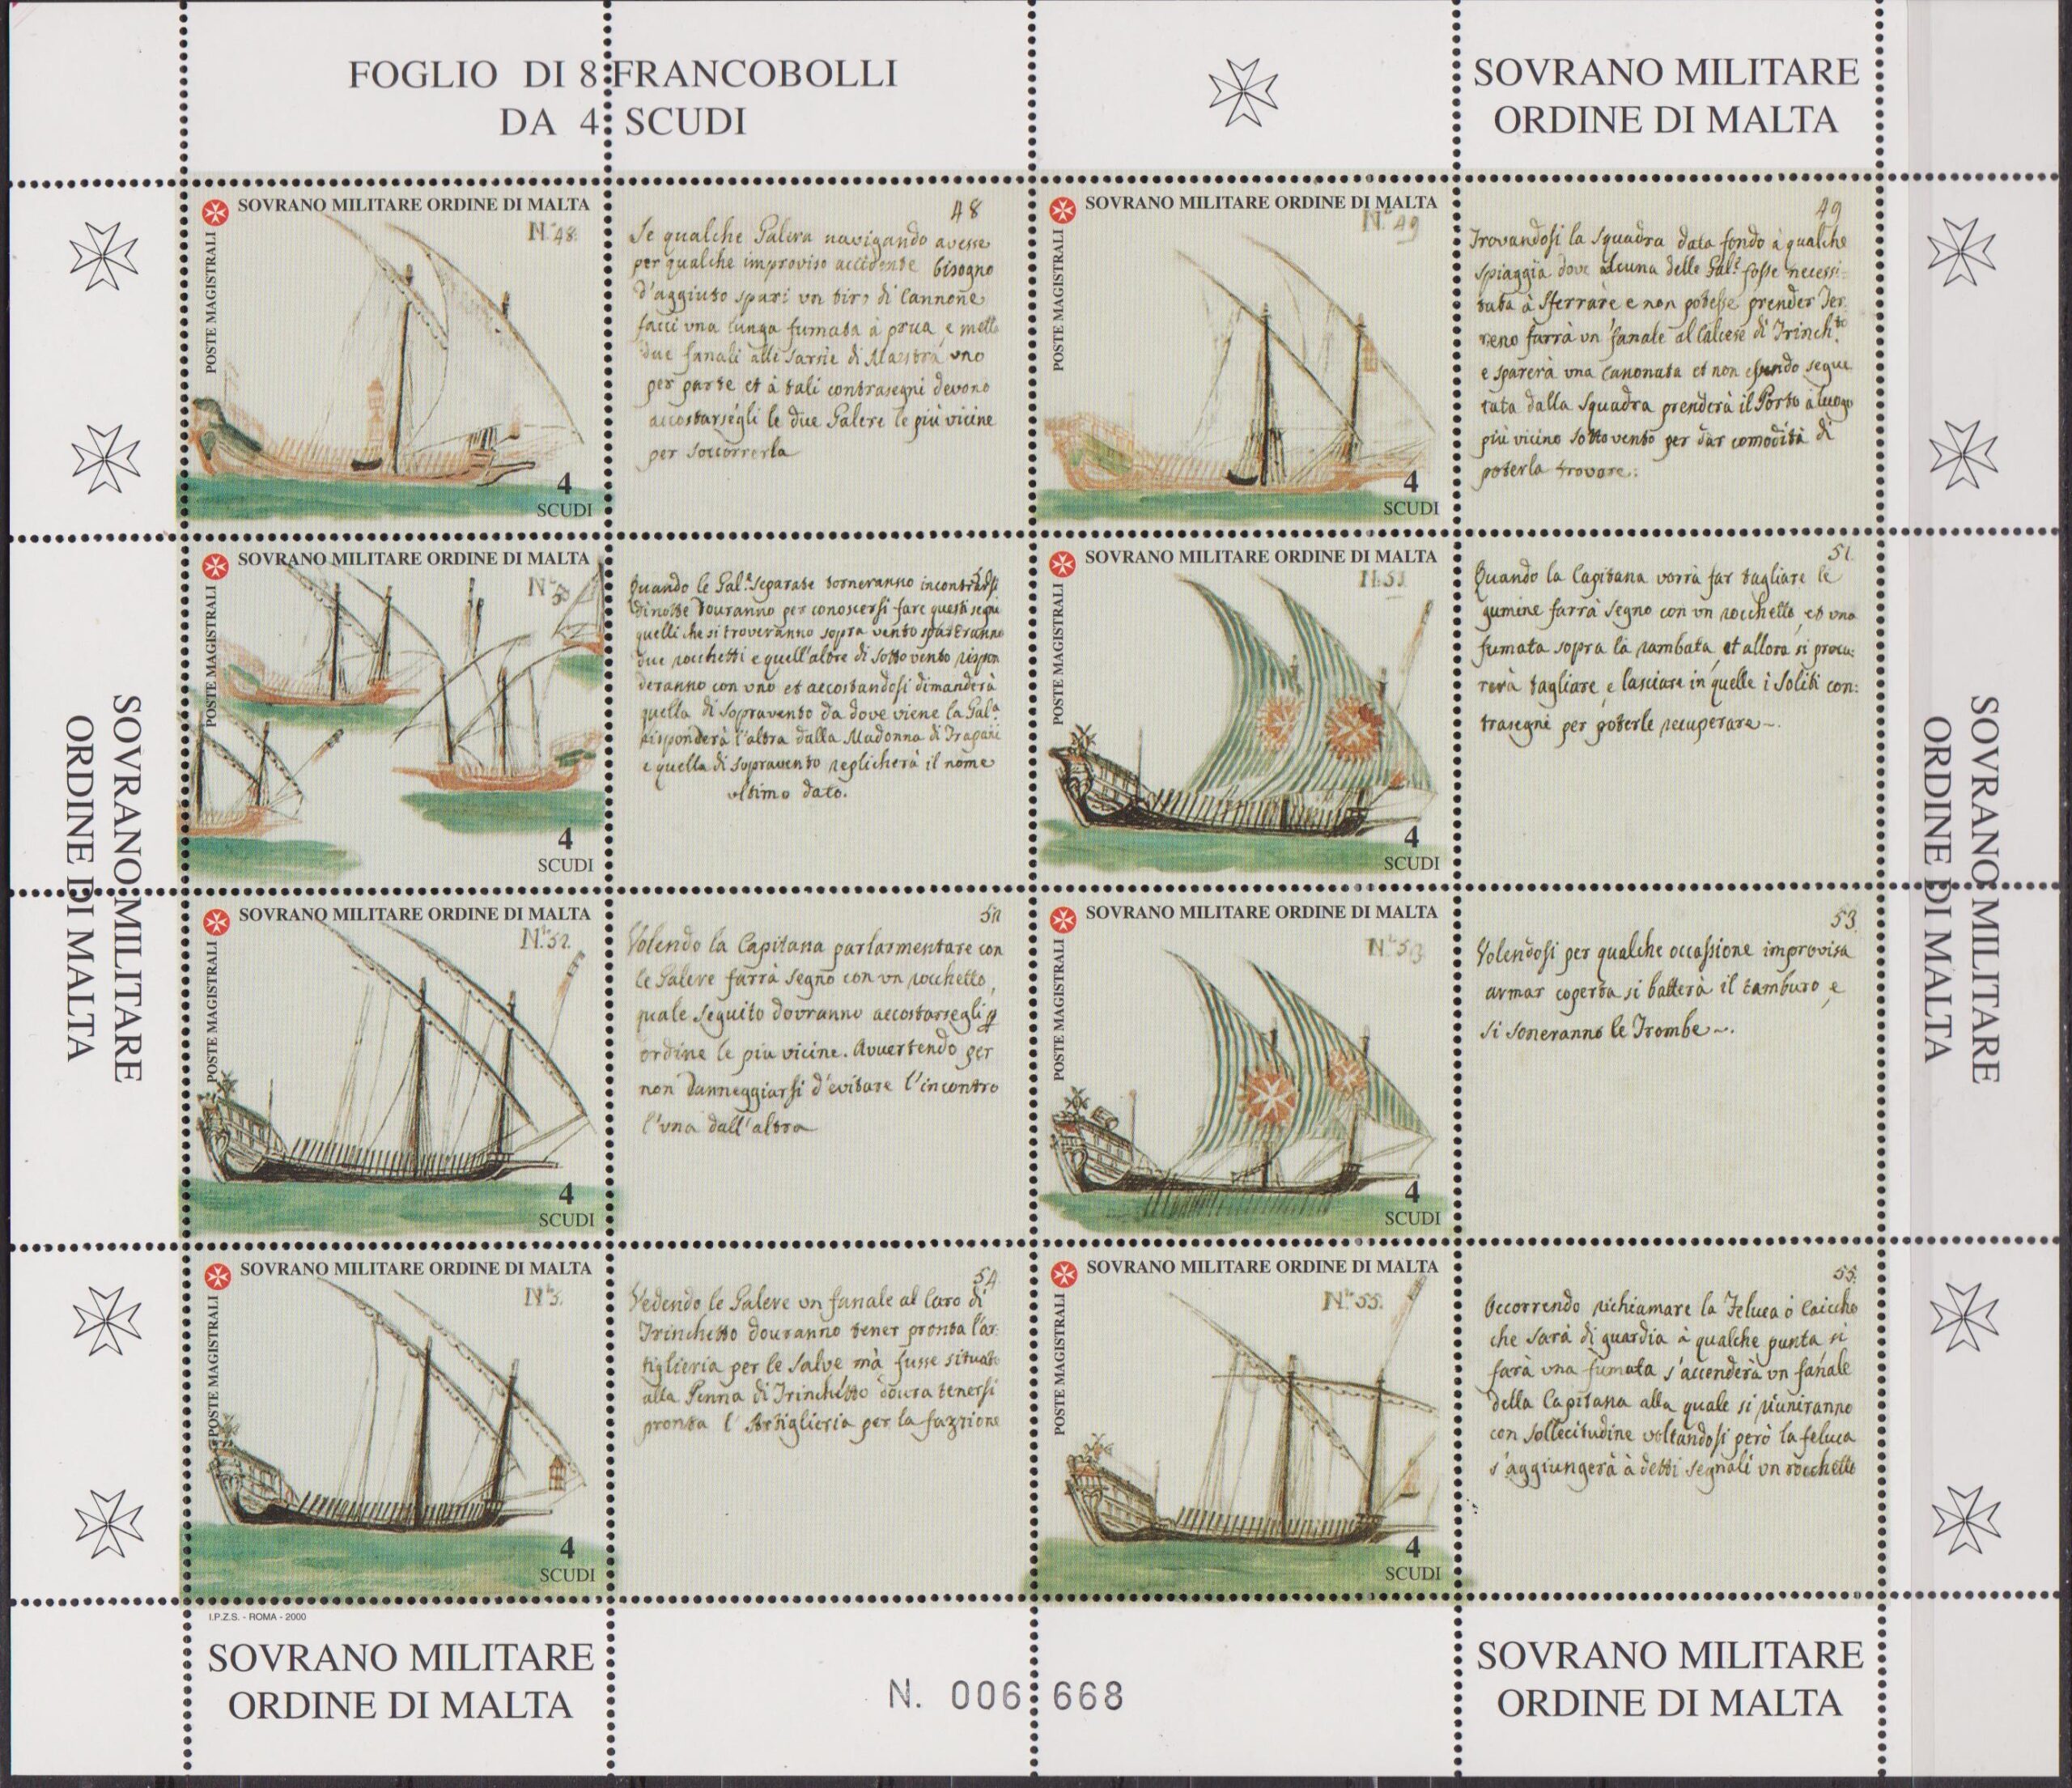 FOGLIO DI 8 FRANCOBOLLI
DA 4 SCUDI
SOVRANO MILITARE
ORDINE DI MALTA
SOVRANO MILITARE ORDINE DI MALTA
POSTE MAGISTRALI
N.º 48.
4
SCUDI
48
Se qualche Galera navigando avesse
per qualche improviso accidente bisogno
d'aggiuto spari un tiro di Cannone
facci vna lunga fumata à prua, e metta
due fanali alle sarsie di Maestra vno
per parte et à tali contrasegni devono
accostarsegli le due Galere le più vicine
per soccorrerla
SOVRANO MILITARE ORDINE DI MALTA
POSTE MAGISTRALI
N.º 49
4
SCUDI
49
Trovandosi la Squadra data fondo à qualche
spiaggia dove alcuna delle Gal.e fosse necessi=
tata à sferrare e non potesse prender Ter
reno farrà vn fanale al Calcese di Trinch.to
e sparerà vna Canonata et non essendo segui
tata dalla Squadra prenderà il Porto ò luogo
più vicino sotto vento per dar comodità di
poterla trovare.
SOVRANO MILITARE ORDINE DI MALTA
POSTE MAGISTRALI
4
SCUDI
Quando le Gal.e separate torneranno incontrarsi
di notte douranno per conoscersi fare questi segni
quelli che si troveranno sopra vento spareranno
due rocchetti e quell'altre di sotto vento rispon
deranno con vno et accostandosi dimanderà
quella di sopravento da dove viene la Gal.a
risponderà l'altra dalla Madonna di Trapani
e quella di sopravento replicherà il nome
vltimo dato.
SOVRANO MILITARE ORDINE DI MALTA
POSTE MAGISTRALI
N. 51
4
SCUDI
51.
Quando la Capitana vorrà far tagliare le
gumine farrà segno con vn rocchetto, et vna
fumata sopra la rambata, et allora si procu:
rerà tagliare, e lasciare in quelle i soliti con:
trasegni per poterle recuperare~.
SOVRANO MILITARE ORDINE DI MALTA
POSTE MAGISTRALI
N.º 52.
4
SCUDI
52
Volendo la Capitana parlarmentare con
le Galere farrà segno con vn rocchetto,
quale seguito dovranno accostarsegli p
ordine le piu vicine. Avvertendo per
non danneggiarsi d'evitare l'incontro
l'vna dall'altra
SOVRANO MILITARE ORDINE DI MALTA
POSTE MAGISTRALI
N.º 53
4
SCUDI
53.
Volendosi per qualche occassione improvisa
armar coperta si batterà il tamburo, e
si soneranno le Trombe~.
SOVRANO MILITARE ORDINE DI MALTA
POSTE MAGISTRALI
N.º 5.
4
SCUDI
54
Vedendo le Galere vn fanale al Caro di
Trinchetto douranno tener pronta l'ar:
tiglieria per le salve mà fusse situato
alla Penna di Trinchetto dourà tenersi
pronta l'Artiglieria per la fazzione
SOVRANO MILITARE ORDINE DI MALTA
POSTE MAGISTRALI
N.º 55.
4
SCUDI
55.
Occorrendo richiamare la Feluca ò Caiccho
che sarà di guardia à qualche punta si
farà vna fumata s'accenderà vn fanale
della Capitana alla quale si riuniranno
con sollecitudine voltandosi però la feluca
s'aggiungerà à detti segnali vn rocchetto
SOVRANO MILITARE
ORDINE DI MALTA
SOVRANO MILITARE
ORDINE DI MALTA
I.P.Z.S. - ROMA - 2000
SOVRANO MILITARE
ORDINE DI MALTA
N. 006 668
SOVRANO MILITARE
ORDINE DI MALTA